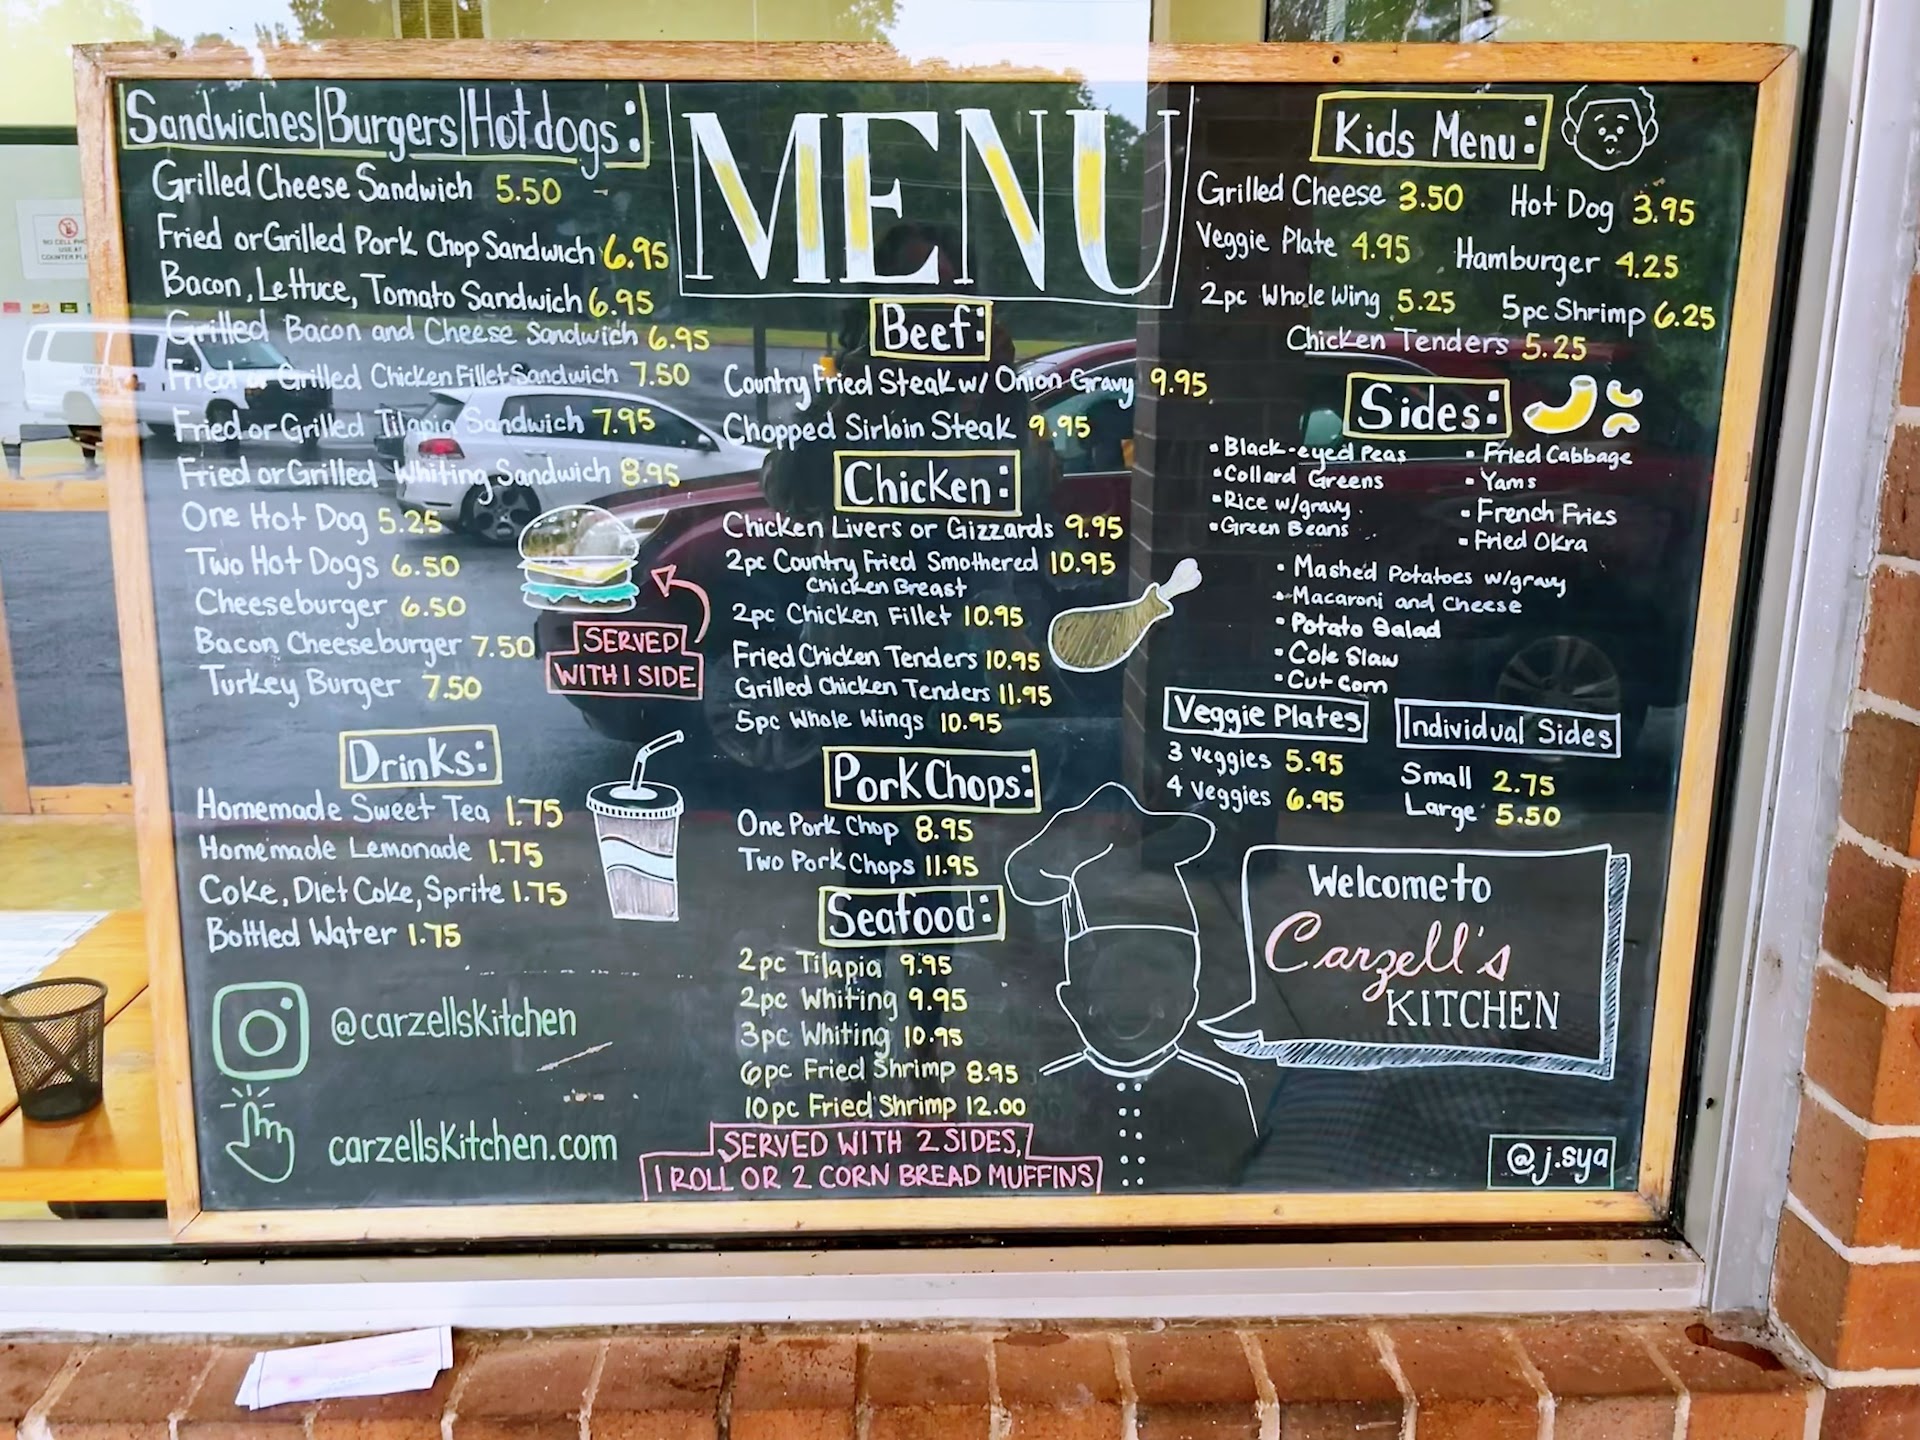 Sandwiches|Burgers|Hotdogs:
Grilled Cheese Sandwich 5.50
Fried or Grilled Pork Chop Sandwich 6.95
Bacon, Lettuce, Tomato Sandwich 6.95
Grilled Bacon and Cheese Sandwich 6.95
Fried or Grilled Chicken Fillet Sandwich 7.50
Fried or Grilled Tilapia Sandwich 7.95
Fried or Grilled Whiting Sandwich 8.95
One Hot Dog 5.25
Two Hot Dogs 6.50
Cheeseburger 6.50
Bacon Cheeseburger 7.50
Turkey Burger 7.50
SERVED
WITH 1 SIDE
Drinks:
Homemade Sweet Tea 1.75
Homemade Lemonade 1.75
Coke, Diet Coke, Sprite 1.75
Bottled Water 1.75
@carzellskitchen
carzellskitchen.com
MENU
Beef:
Country Fried Steak w/ Onion Gravy 9.95
Chopped Sirloin Steak 9.95
Chicken:
Chicken Livers or Gizzards 9.95
2pc Country Fried Smothered 10.95
Chicken Breast
2pc Chicken Fillet 10.95
Fried Chicken Tenders 10.95
Grilled Chicken Tenders 11.95
5pc Whole Wings 10.95
Pork Chops:
One Pork Chop 8.95
Two Pork Chops 11.95
Seafood:
2pc Tilapia 9.95
2pc Whiting 9.95
3pc Whiting 10.95
6pc Fried Shrimp 8.95
10pc Fried Shrimp 12.00
SERVED WITH 2 SIDES,
1 ROLL OR 2 CORN BREAD MUFFINS
Kids Menu:
Grilled Cheese 3.50 Hot Dog 3.95
Veggie Plate 4.95 Hamburger 4.25
2pc Whole Wing 5.25 5pc Shrimp 6.25
Chicken Tenders 5.25
Sides:
• Black-eyed Peas • Fried Cabbage
• Collard Greens • Yams
• Rice w/gravy • French Fries
• Green Beans • Fried Okra
• Mashed Potatoes w/gravy
• Macaroni and Cheese
• Potato Salad
• Cole Slaw
• Cut Corn
Veggie Plates
3 Veggies 5.95
4 Veggies 6.95
Individual Sides
Small 2.75
Large 5.50
Welcome to
Carzell's
KITCHEN
@j.sya
NO CELL
USE AT
COUNTER